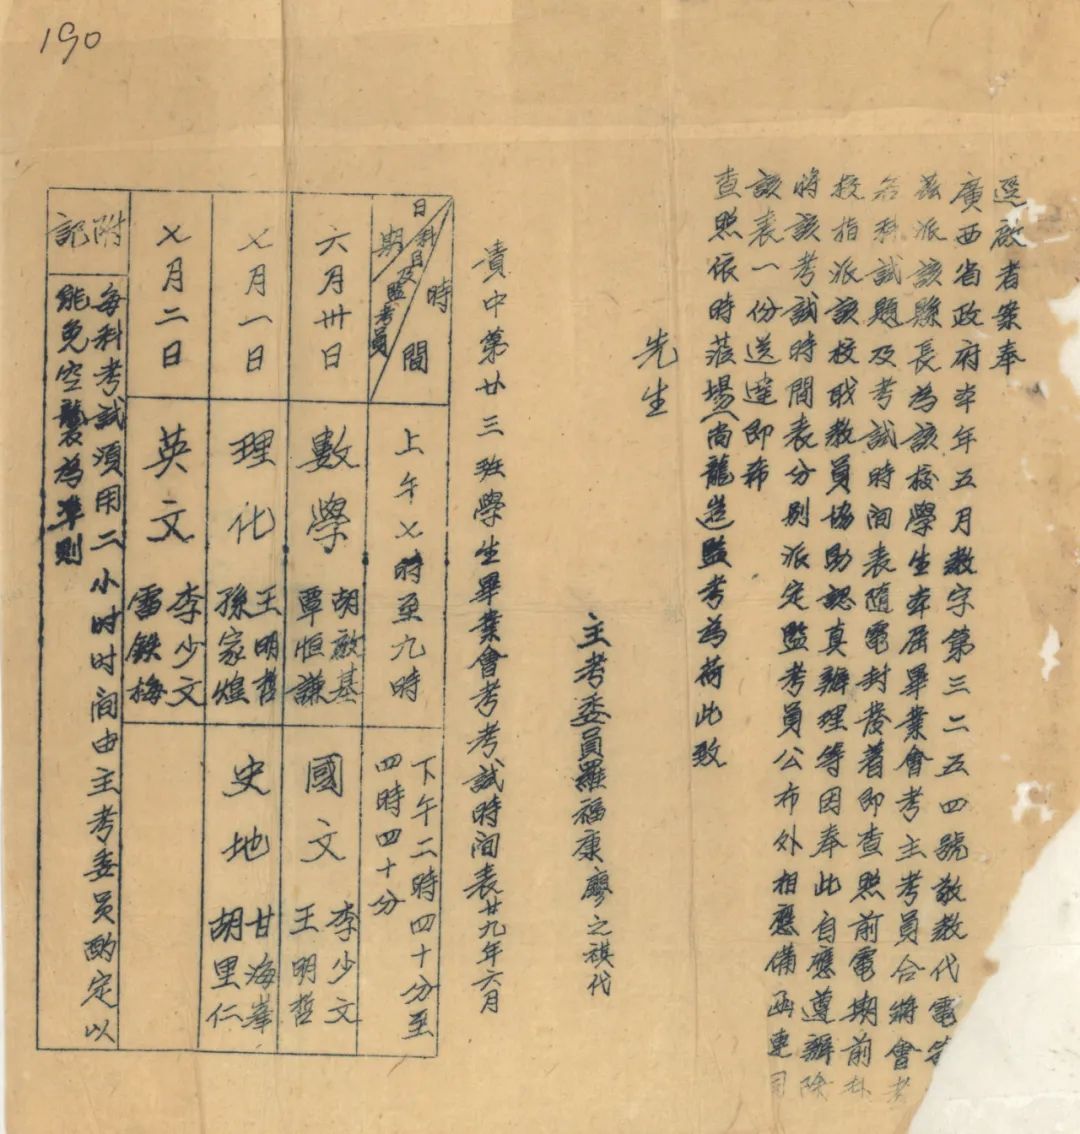 190
逕啟者案奉
廣西省政府本年五月教字第三二五四號敬教代電
茲派該縣長為該校學生本屆畢業會考主考員合將會考
各科試題及考試時间表隨電封發著即查照前電期前
校指派該校職教員協助認真辦理等因奉此自應遵辦除
將該考試時間表分别派定監考員公布外相應備函連同
該表一份送達即希
查照依時蒞場(尚龍岩)監考為荷此致
先生
主考委員羅福康 廖之祺代
貴中第廿三班學生畢業會考考試時间表廿九年六月
時間
科目及監考員
日期
上午七時至九時
下午二時四十分至
四時四十分
六月卅日
數學 胡啟基
覃恒謙
國文 李少文
王明哲
七月一日
理化 王明哲
孫家煌
史地 甘海峯
胡里仁
七月二日
英文 李少文
雷鉄梅
附記
每科考試須用二小时时间由主考委員酌定以
能免空襲為準則